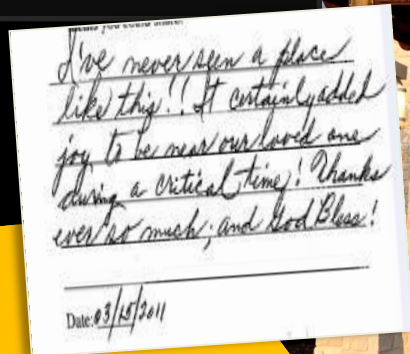 ideas you could share:
I've never seen a place
like this!! It certainly added
joy to be near our loved one
during a critical time! Thanks
ever so much; and God Bless!
Date: 03/15/2011